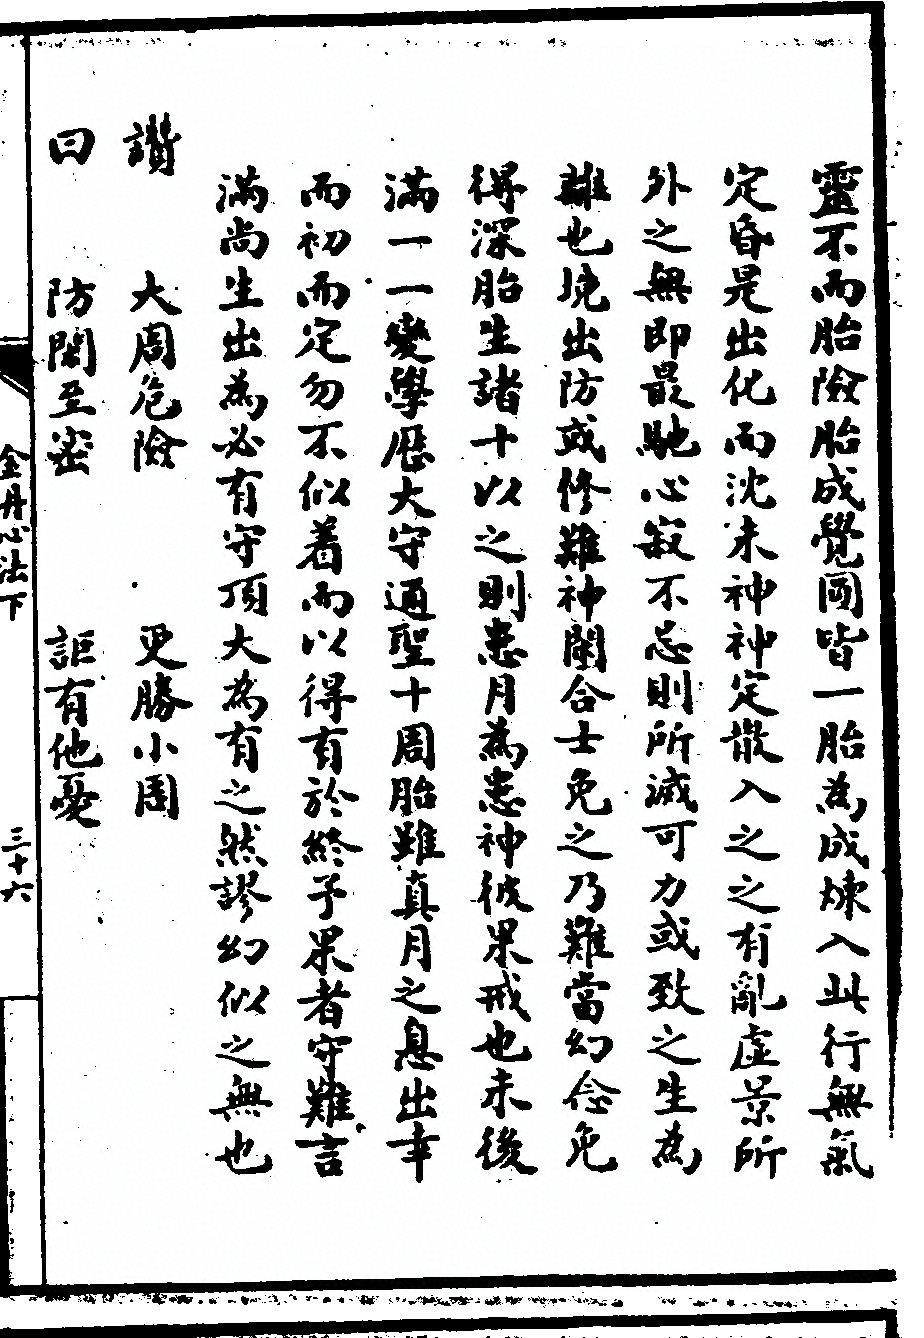 靈不而胎險胎成覺圓皆一胎為成煉入此行無氣
定昏是出化而沈未神神定散入之之有亂虛景所
外之無即最馳心寂不忌則所滅可力或致之生為
離也境出防或修難神閑合士免之乃難當幻念免
得深胎生諸十以之則患月為患神彼果戒也未後
滿一一變學歷大守通聖十周胎雖真月之息出幸
而初而定勿不似着而以得有於終予果者守難言
滿尚生出為必有守頂大為有之然謬幻似之無也
讚 大周危險 更勝小周
曰 防閑至密 詎有他憂
金丹心法下 三十六